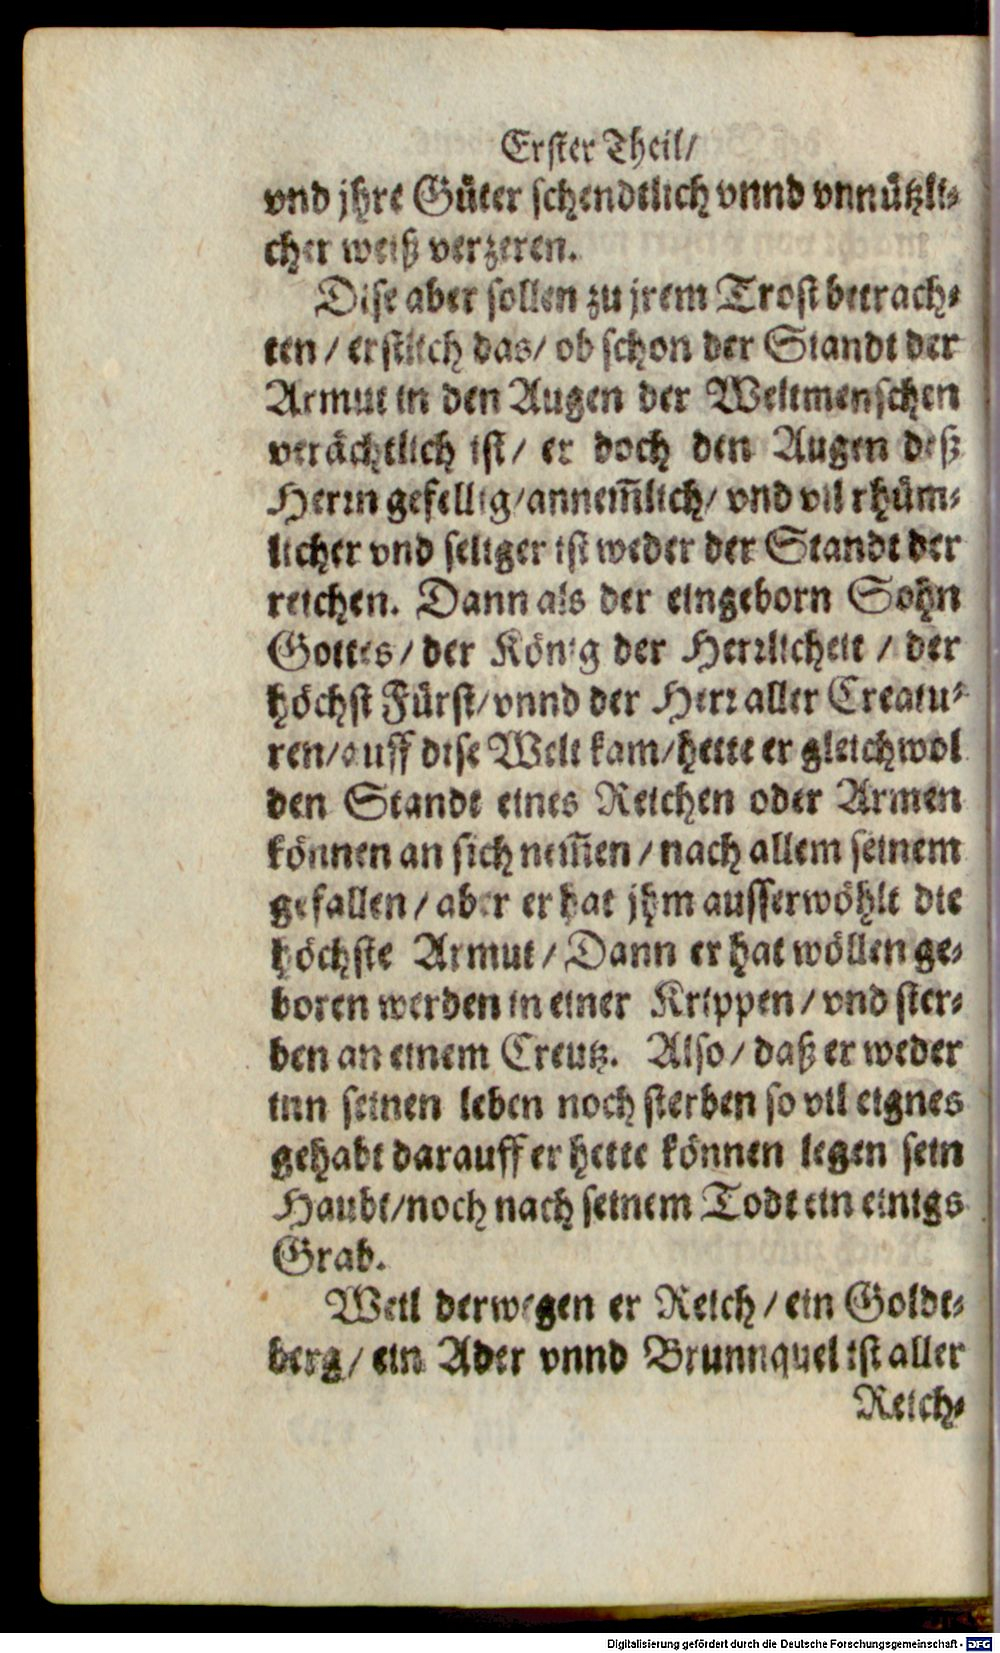 Erster Theil/
vnd jhre Güter schendtlich vnnd vnnützli-
cher weiß verzeren.
Dise aber sollen zu jrem Trost betrach-
ten / erstlich das/ ob schon der Standt der
Armut in den Augen der Weltmenschen
verächtlich ist/ er doch den Augen deß
Herrn gefellig/annem̅lich/ vnd vil rhüm-
licher vnd seliger ist weder der Standt der
reichen. Dann als der eingeborn Sohn
Gottes/ der König der Herrlicheit / der
höchst Fürst/vnnd der Herr aller Creatu-
ren/auff dise Welt kam/hette er gleichwol
den Standt eines Reichen oder Armen
können an sich nem̅en / nach allem seinem
gefallen / aber er hat jhm ausserwöhlt die
höchste Armut / Dann er hat wöllen ge-
boren werden in einer Krippen / vnd ster-
ben an einem Creutz. Also / daß er weder
inn seinen leben noch sterben so vil eignes
gehabt darauff er hette können legen sein
Haubt/noch nach seinem Todt ein einigs
Grab.
Weil derwegen er Reich / ein Goldt-
berg/ ein Ader vnnd Brunnquel ist aller
Reich-
Digitalisierung gefördert durch die Deutsche Forschungsgemeinschaft - DFG